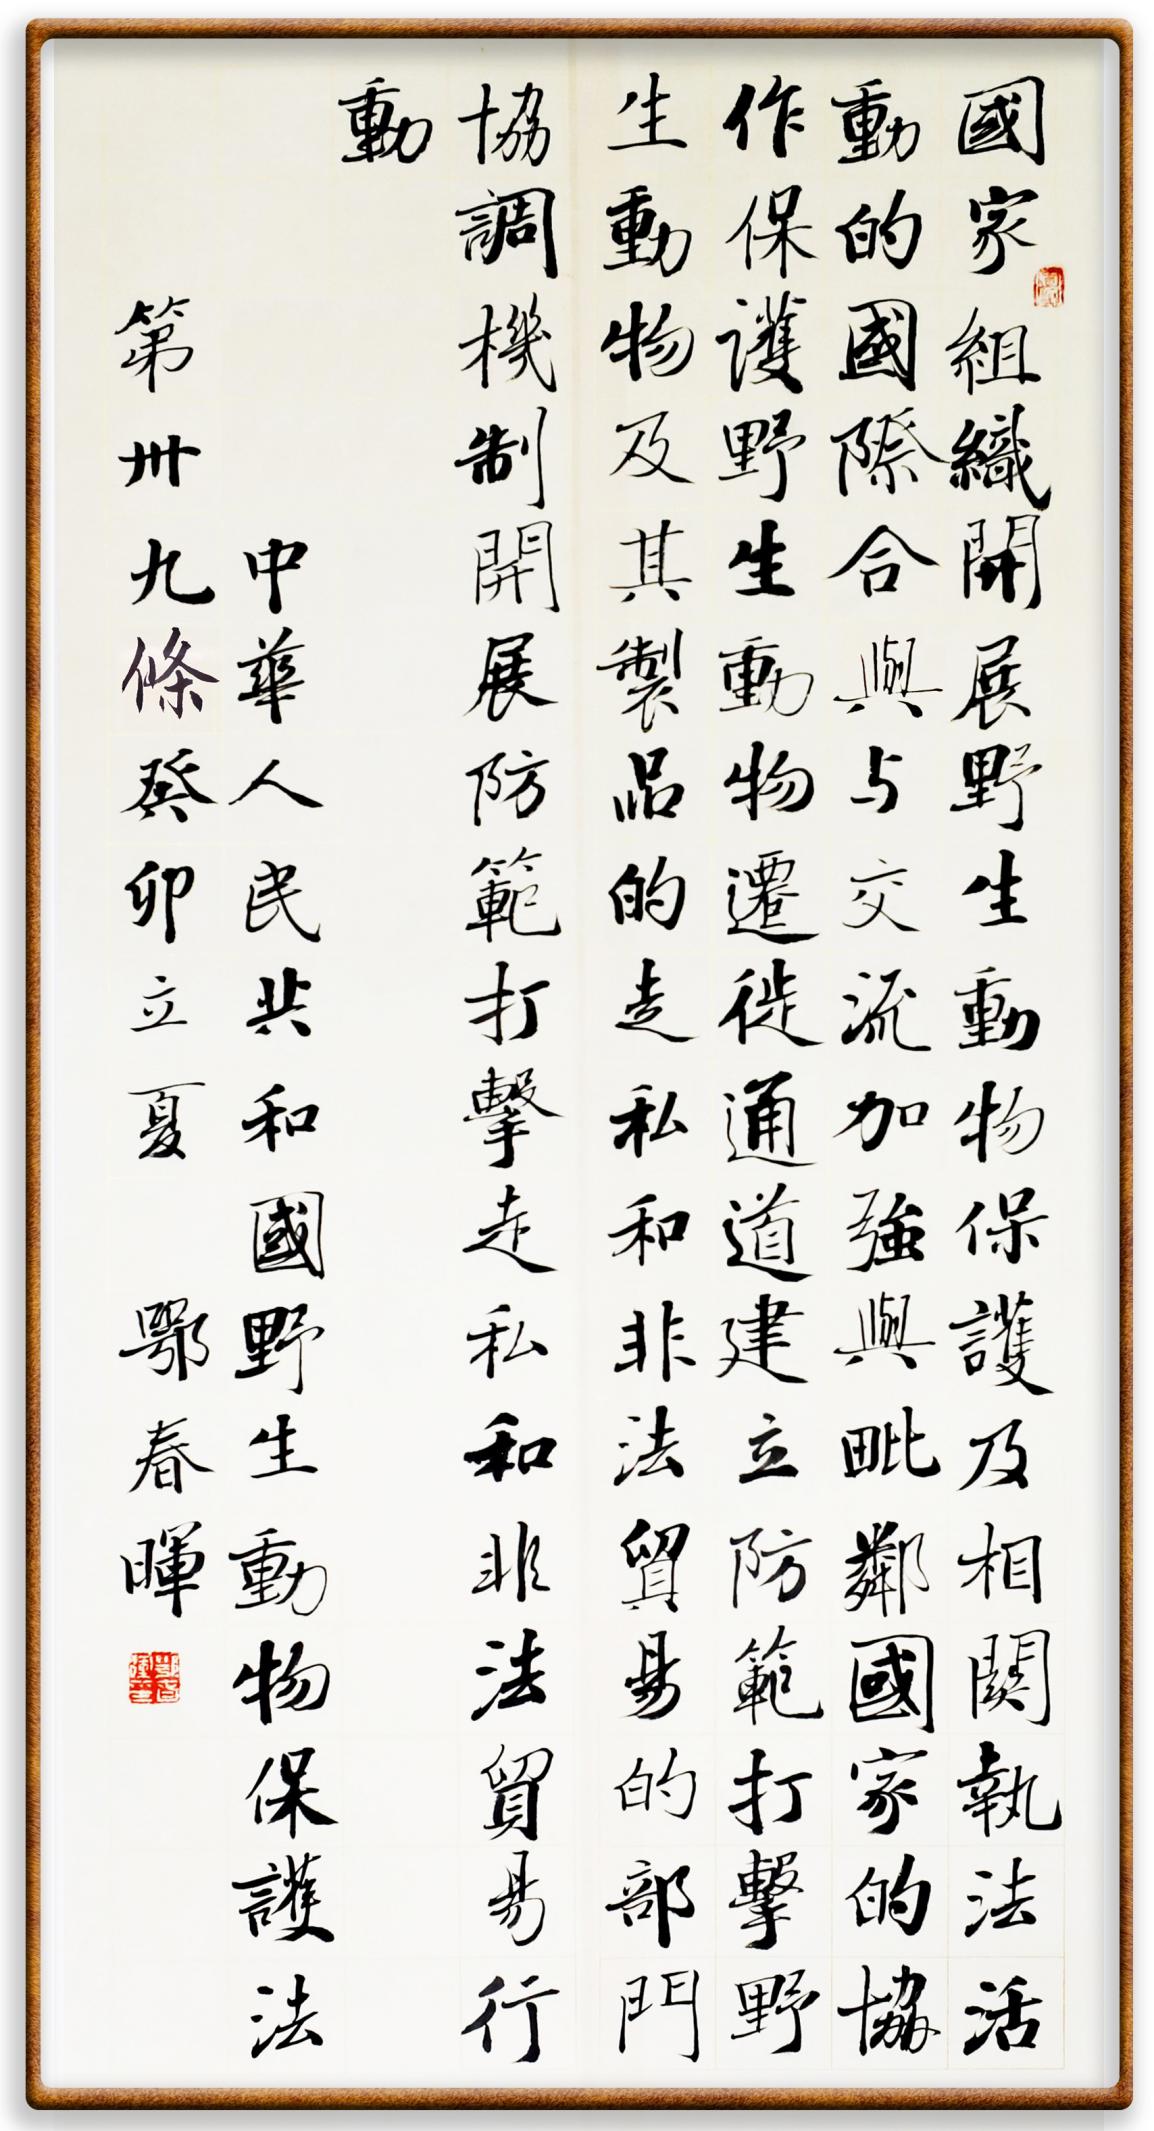 國家組織開展野生動物保護及相關執法活
動的國際合與与交流加強與毗鄰國家的協
作保護野生動物遷徙通道建立防範打擊野
生動物及其製品的走私和非法貿易的部門
協調機制開展防範打擊走私和非法貿易行
動
中華人民共和國野生動物保護法
第卅九條癸卯立夏 鄂春暉